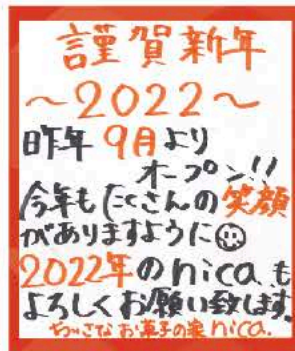 謹賀新年
～2022～
昨年9月より
オープン!!
今年もたくさんの笑顔
がありますように☺
2022年のnicaも
よろしくお願い致します。
ちいさなお菓子の家nica.